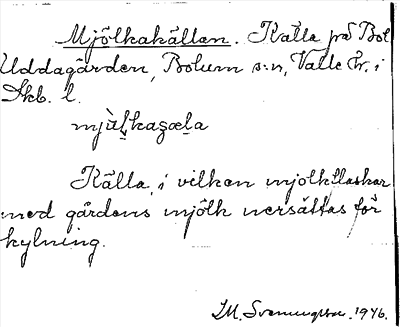 Mjölkakällan. Källa på Bol
Uddagården, Bolum s:n, Valle hr. i
Skb. l.
mjùḷkaʂæḷa
Källa, i vilken mjölkflaskar
med gårdens mjölk nersättas för
kylning.
M. Svenungsson. 1946.